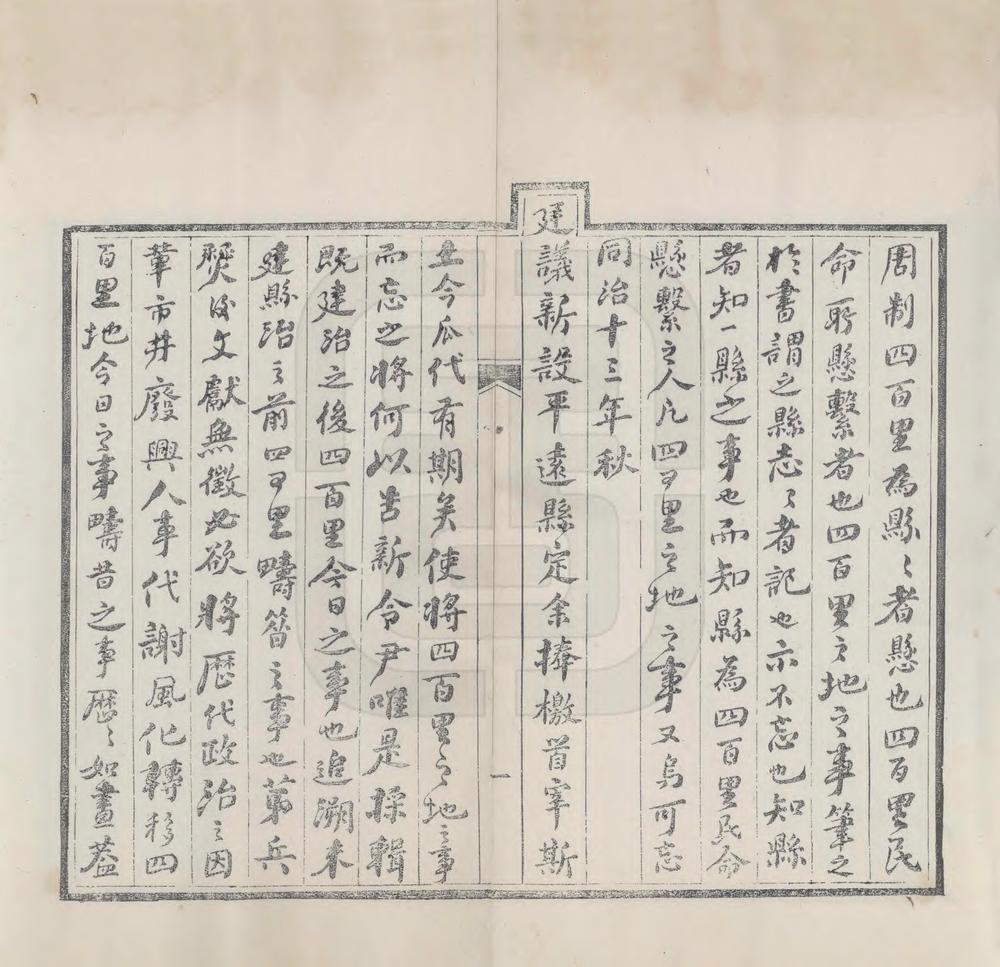 周制四百里為縣〻者懸也四百里民
命所懸繫者也四百里之地之事筆之
於書謂之縣志〻者記也示不忘也知縣
者知一縣之事也而知縣為四百里民命
懸繫之人凡四百里之地之事又烏可忘
同治十三年秋
廷議新設平遠縣定余捧檄首宰斯
土今瓜代有期矣使將四百里之地之事
而忘之將何以告新令尹唯是採輯
既建治之後四百里今日之事也追溯未
建縣治之前四百里疇昔之事也苐兵
燹後文獻無徵必欲將歷代政治之因
革市井廢興人事代謝風化轉移四
百里地今日之事疇昔之事歷〻如畫葢
一